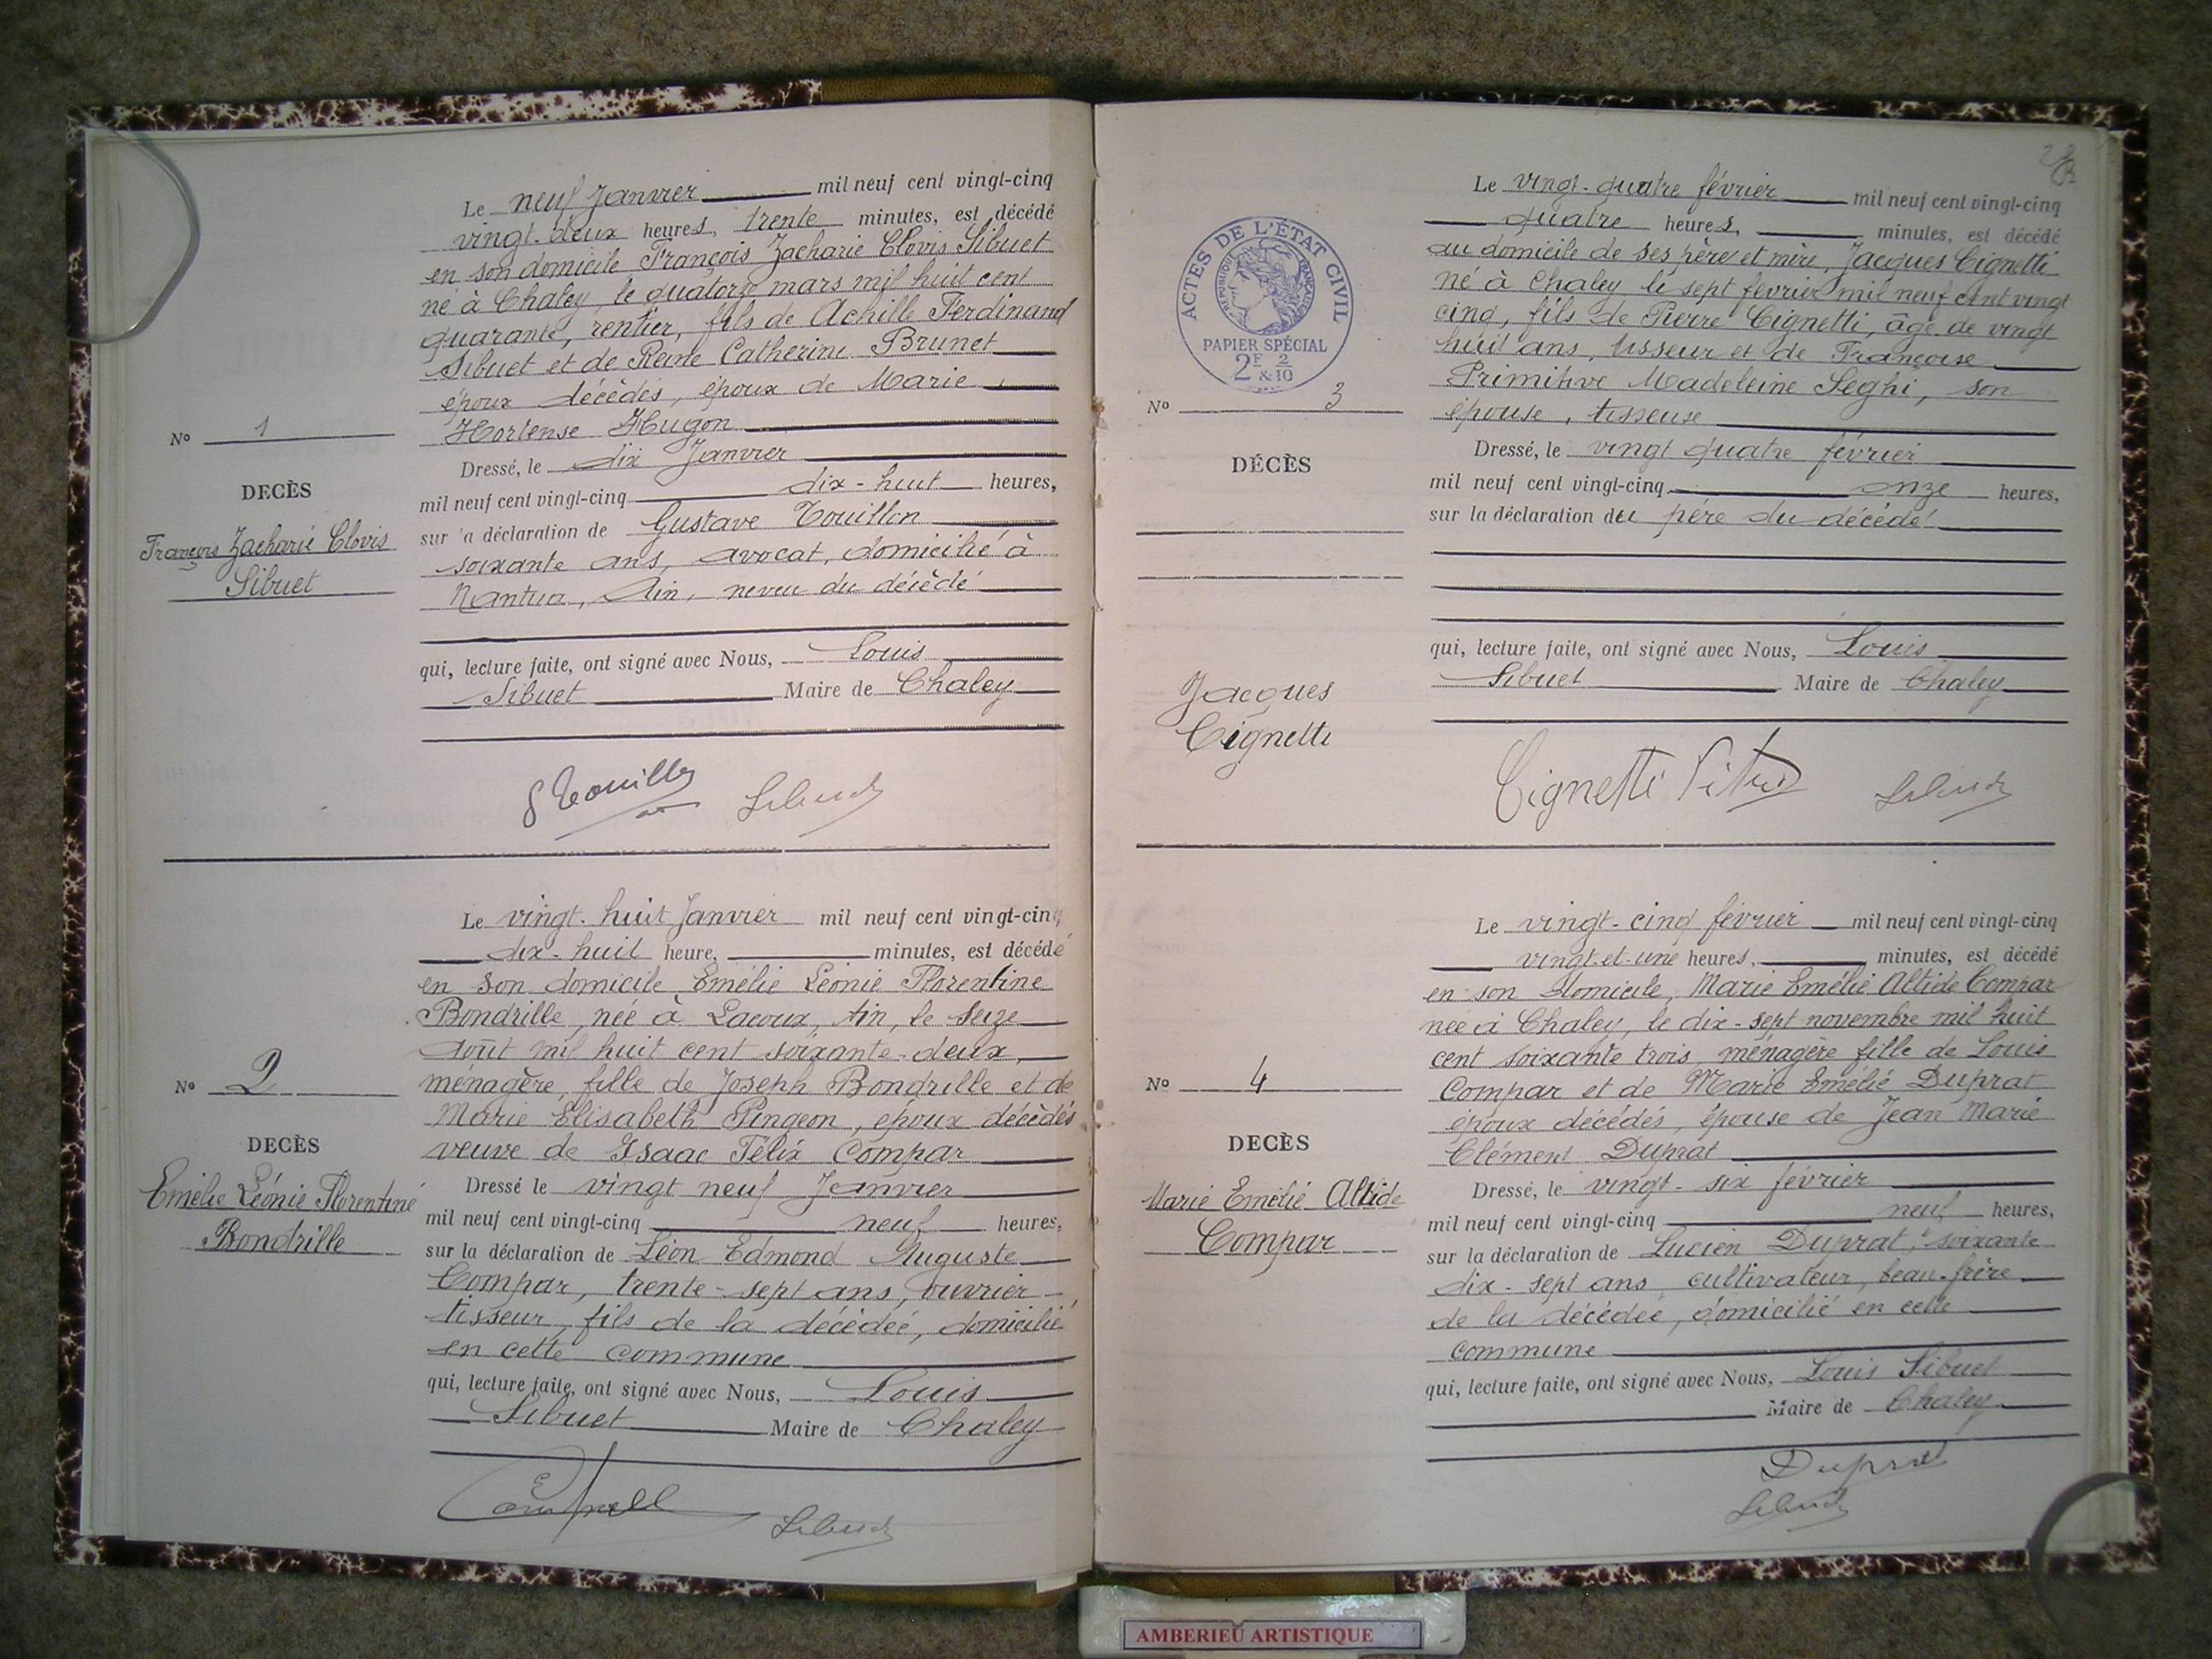 Le neuf Janvier mil neuf cent vingt-cinq
vingt-deux heures, trente minutes, est décédé
en son domicile François Zacharie Clovis Sibuet
né à Chaley, le quatorze mars mil huit cent
quarante, rentier, fils de Achille Ferdinand
Sibuet et de Reine Catherine Brunet
époux décèdés, époux de Marie
Hortense Hugon
No 1
DECÈS
François Zacharie Clovis
Sibuet
Dressé, le dix Janvier
mil neuf cent vingt-cinq dix-huit heures,
sur la déclaration de Gustave Touillon
soixante ans, avocat, domicilié à
Nantua, Ain, neveu du décèdé
qui, lecture faite, ont signé avec Nous, Louis
Sibuet Maire de Chaley
G Touillon Sibuet
Le vingt-huit Janvier mil neuf cent vingt-cinq
dix-huit heure, minutes, est décédé
en son domicile Emélie Léonie Florentine
Bondrille, née à Lacoux, Ain, le seize
août mil huit cent soixante-deux,
ménagère, fille de Joseph Bondrille et de
Marie Elisabeth Pingeon, époux décèdés
veuve de Isaac Félix Compar
No 2
DECÈS
Emélie Léonie Florentine
Bondrille
Dressé le vingt neuf Janvier
mil neuf cent vingt-cinq neuf heures,
sur la déclaration de Léon Edmond Auguste
Compar, trente-sept ans, ouvrier
tisseur, fils de la décèdée, domicilié
en cette commune
qui, lecture faite, ont signé avec Nous, Louis
Sibuet Maire de Chaley
Sibuet
Le vingt-quatre février mil neuf cent vingt-cinq
quatre heures, minutes, est décédé
au domicile de ses père et mère, Jacques Cignetti
né à Chaley le sept février mil neuf cent vingt
cinq, fils de Pierre Cignetti, âgé de vingt
huit ans, tisseur et de Françoise
Primitive Madeleine Seghi, son
épouse, tisseuse
ACTES DE L'ÉTAT CIVIL
RÉPUBLIQUE FRANÇAISE
PAPIER SPÉCIAL
2F 2
&10
No 3
DÉCÈS
Jacques
Cignetti
Dressé, le vingt quatre février
mil neuf cent vingt-cinq onze heures,
sur la déclaration du père du décédé
qui, lecture faite, ont signé avec Nous, Louis
Sibuet Maire de Chaley
Cignetti Sibuet
Le vingt-cinq février mil neuf cent vingt-cinq
vingt-et-une heures, minutes, est décédé
en son domicile, Marie Emélie Altide Compar
née à Chaley, le dix-sept novembre mil huit
cent soixante trois, ménagère fille de Louis
Compar et de Marie Emélie Duprat
époux décédés, épouse de Jean Marie
Clément Duprat
No 4
DECÈS
Marie Emélie Altide
Compar
Dressé, le vingt-six février
mil neuf cent vingt-cinq neuf heures,
sur la déclaration de Lucien Duprat, soixante
dix-sept ans, cultivateur, beau-frère
de la décèdée, domicilié en cette
commune
qui, lecture faite, ont signé avec Nous, Louis Sibuet
Maire de Chaley
Duprat
Sibuet
AMBERIEU ARTISTIQUE